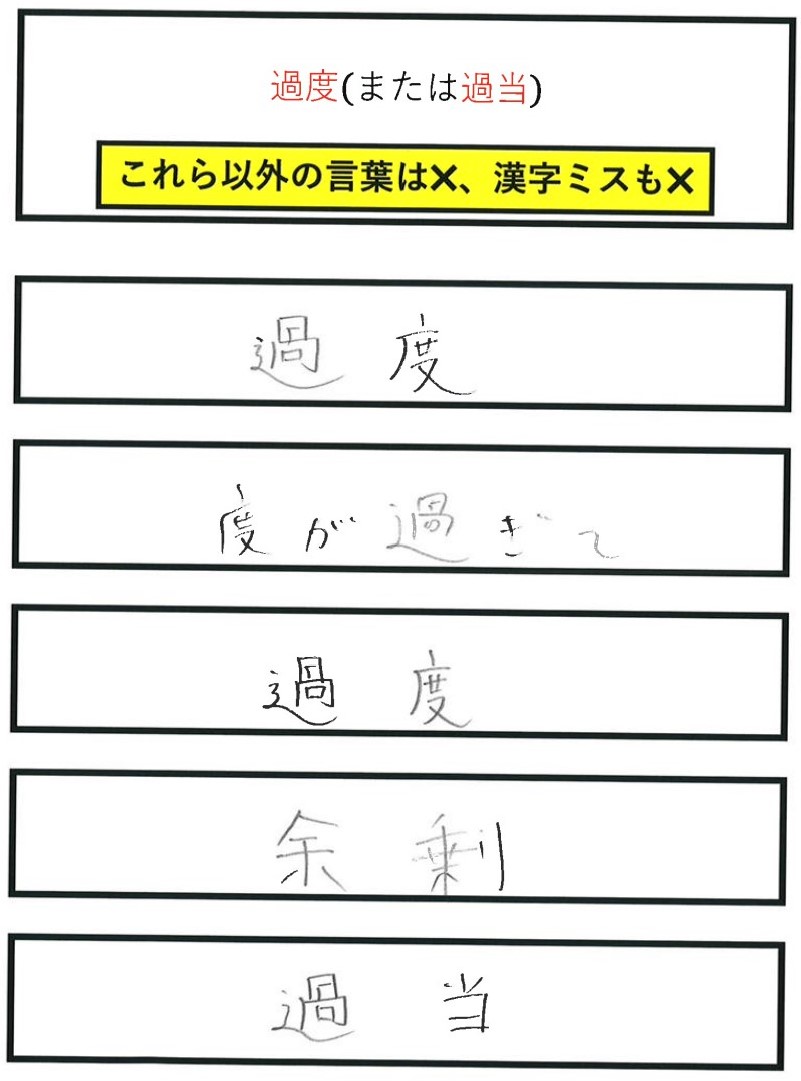 過度(または過当)
これら以外の言葉は×、漢字ミスも×
過度
度が過ぎて
過度
余剰
過当